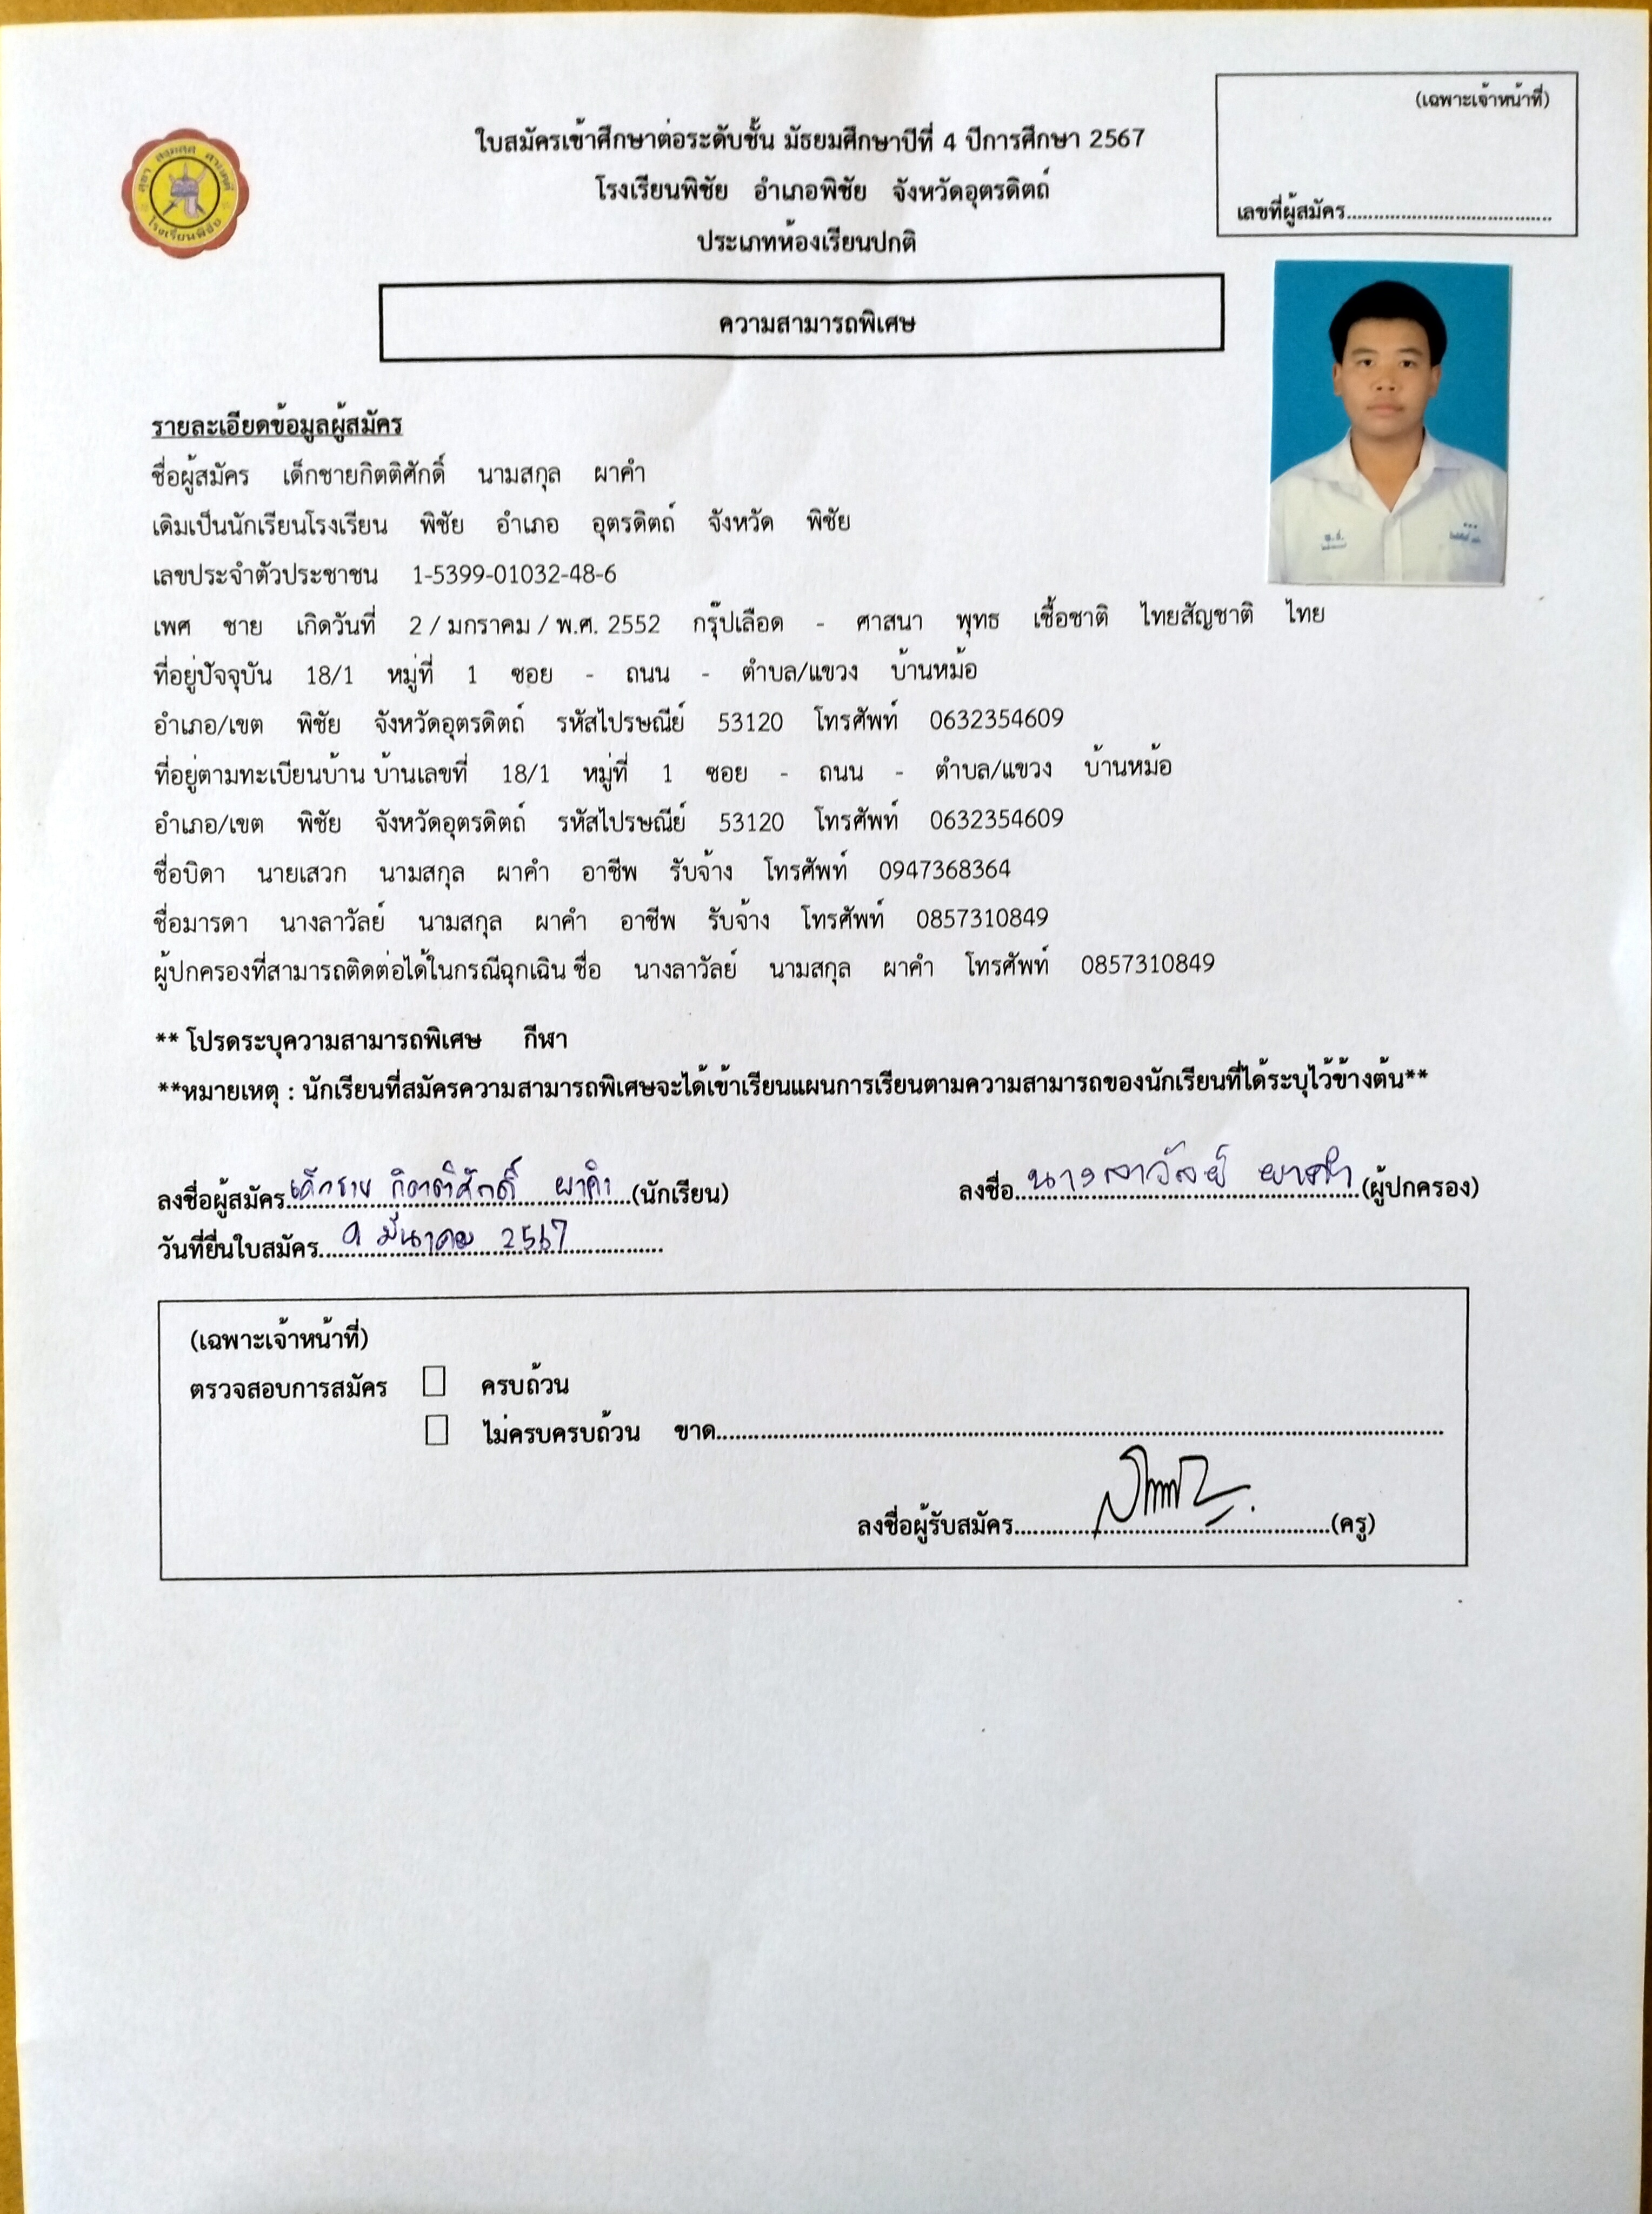 (เฉพาะเจ้าหน้าที่)
เลขที่ผู้สมัคร......................................
ใบสมัครเข้าศึกษาต่อระดับชั้น มัธยมศึกษาปีที่ 4 ปีการศึกษา 2567
โรงเรียนพิชัย อำเภอพิชัย จังหวัดอุตรดิตถ์
ประเภทห้องเรียนปกติ
โรงเรียนพิชัย
ความสามารถพิเศษ
รายละเอียดข้อมูลผู้สมัคร
ชื่อผู้สมัคร เด็กชายกิตติศักดิ์ นามสกุล ผาคำ
เดิมเป็นนักเรียนโรงเรียน พิชัย อำเภอ อุตรดิตถ์ จังหวัด พิชัย
เลขประจำตัวประชาชน 1-5399-01032-48-6
เพศ ชาย เกิดวันที่ 2 / มกราคม / พ.ศ. 2552 กรุ๊ปเลือด - ศาสนา พุทธ เชื้อชาติ ไทยสัญชาติ ไทย
ที่อยู่ปัจจุบัน 18/1 หมู่ที่ 1 ซอย - ถนน - ตำบล/แขวง บ้านหม้อ
อำเภอ/เขต พิชัย จังหวัดอุตรดิตถ์ รหัสไปรษณีย์ 53120 โทรศัพท์ 0632354609
ที่อยู่ตามทะเบียนบ้าน บ้านเลขที่ 18/1 หมู่ที่ 1 ซอย - ถนน - ตำบล/แขวง บ้านหม้อ
อำเภอ/เขต พิชัย จังหวัดอุตรดิตถ์ รหัสไปรษณีย์ 53120 โทรศัพท์ 0632354609
ชื่อบิดา นายเสวก นามสกุล ผาคำ อาชีพ รับจ้าง โทรศัพท์ 0947368364
ชื่อมารดา นางลาวัลย์ นามสกุล ผาคำ อาชีพ รับจ้าง โทรศัพท์ 0857310849
ผู้ปกครองที่สามารถติดต่อได้ในกรณีฉุกเฉิน ชื่อ นางลาวัลย์ นามสกุล ผาคำ โทรศัพท์ 0857310849
** โปรดระบุความสามารถพิเศษ กีฬา
**หมายเหตุ : นักเรียนที่สมัครความสามารถพิเศษจะได้เข้าเรียนแผนการเรียนตามความสามารถของนักเรียนที่ได้ระบุไว้ข้างต้น**
ลงชื่อผู้สมัคร เด็กชาย กิตติศักดิ์ ผาคำ (นักเรียน) ลงชื่อ นางลาวัลย์ ผาคำ (ผู้ปกครอง)
วันที่ยื่นใบสมัคร 9 มีนาคม 2567
(เฉพาะเจ้าหน้าที่)
ตรวจสอบการสมัคร ☐ ครบถ้วน
☐ ไม่ครบครบถ้วน ขาด........................................
ลงชื่อผู้รับสมัคร........................................(ครู)